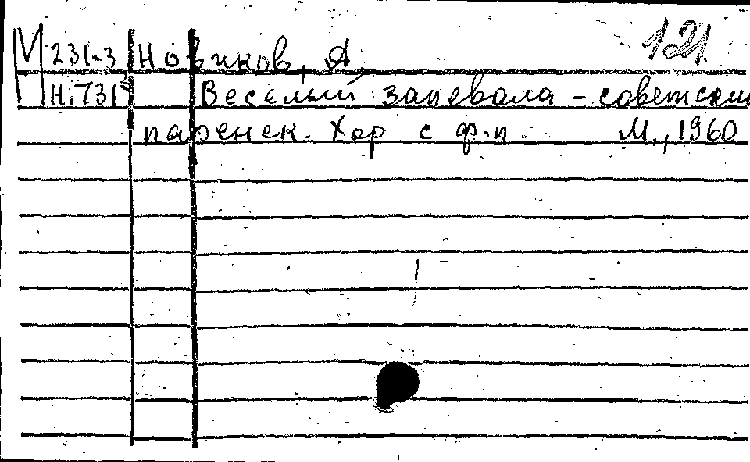 121
М 231-3 Новиков, А.
Н.731 Веселый запевала - советский
паренек. Хор с ф.п. М., 1960